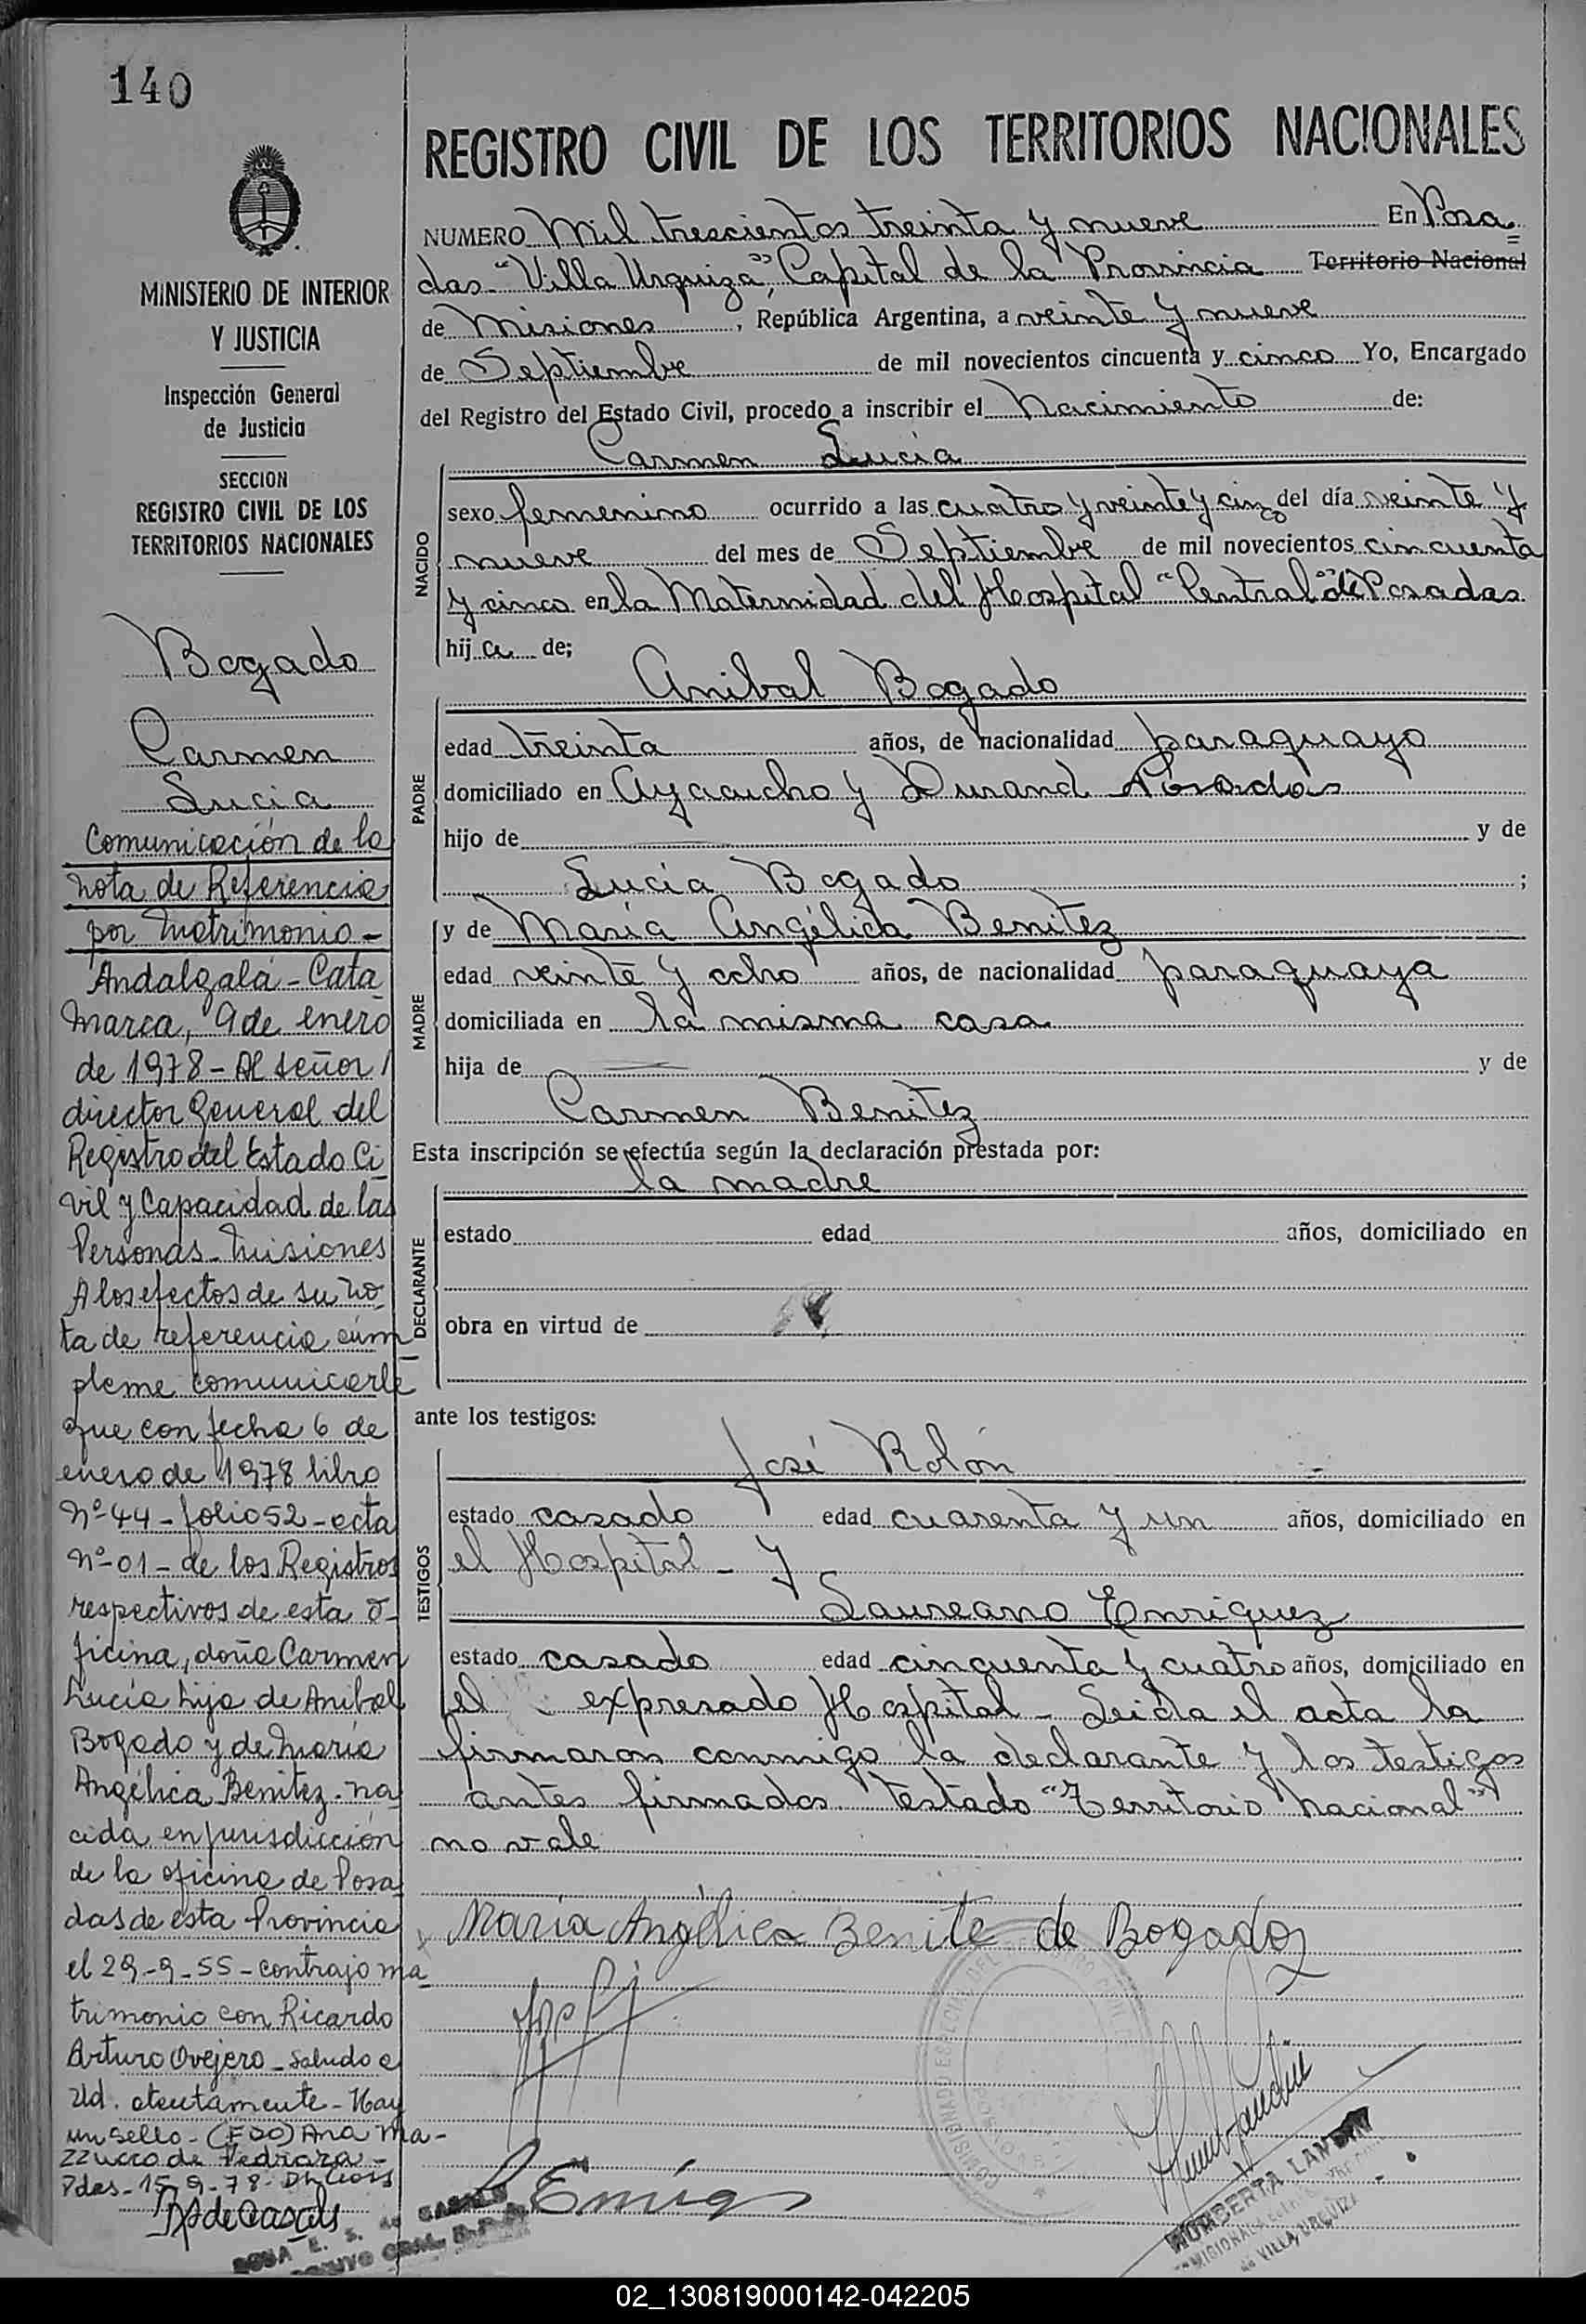 140
MINISTERIO DE INTERIOR
Y JUSTICIA
Inspección General
de Justicia
SECCION
REGISTRO CIVIL DE LOS
TERRITORIOS NACIONALES
Bogado
Carmen
Lucia
Comunicación de la
nota de Referencia
por Matrimonio -
Andalgalá - Cata
marca, 9 de enero
de 1978 - Al señor /
director General del
Registro del Estado Ci
vil y Capacidad de las
Personas - Misiones
A los efectos de su no
ta de referencia cúm
pleme comunicarle
que con fecha 6 de
enero de 1978 libro
Nº 44 - folio 52 - acta
Nº 01 - de los Registros
respectivos de esta o-
ficina, doña Carmen
Lucía hija de Anibal
Bogado y de María
Angélica Benitez - na
cida en jurisdicción
de la oficina de Posa
das de esta Provincia
el 29-9-55 - contrajo ma
trimonio con Ricardo
Arturo Ovejero - Saludo a
Ud. atentamente - Hay
un sello - (FDO) Ana Ma-
zzucco de
Pdas - 15-9-78 -
REGISTRO CIVIL DE LOS TERRITORIOS NACIONALES
NUMERO Mil trescientos treinta y nueve En Posa=
das "Villa Urquiza", Capital de la Provincia Territorio Nacional
de Misiones, República Argentina, a veinte y nueve
de Septiembre de mil novecientos cincuenta y cinco Yo, Encargado
del Registro del Estado Civil, procedo a inscribir el Nacimiento de:
Carmen Lucia
NACIDO
sexo femenino ocurrido a las cuatro y veinte y cinco del día veinte y
nueve del mes de Septiembre de mil novecientos cincuenta
y cinco en la Maternidad del Hospital "Central" de Posadas
hija de;
Anibal Bogado
PADRE
edad treinta años, de nacionalidad paraguayo
domiciliado en Ayacucho y Durand Posadas
hijo de y de
Lucia Bogado ;
y de María Angélica Benitez
MADRE
edad veinte y ocho años, de nacionalidad paraguaya
domiciliada en la misma casa
hija de y de
Carmen Benitez
Esta inscripción se efectúa según la declaración prestada por:
la madre
DECLARANTE
estado edad años, domiciliado en
obra en virtud de
ante los testigos:
José Rolón
TESTIGOS
estado casado edad cuarenta y un años, domiciliado en
el Hospital - y
Laureano Enriquez
estado casado edad cincuenta y cuatro años, domiciliado en
el expresado Hospital - Leida el acta la
firmaron conmigo la declarante y los testigos
antes firmados testado "Territorio Nacional"
no vale
Maria Angelica Benite de Bogado
HUMBERTA
VILLA URQUIZA
02_130819000142-042205